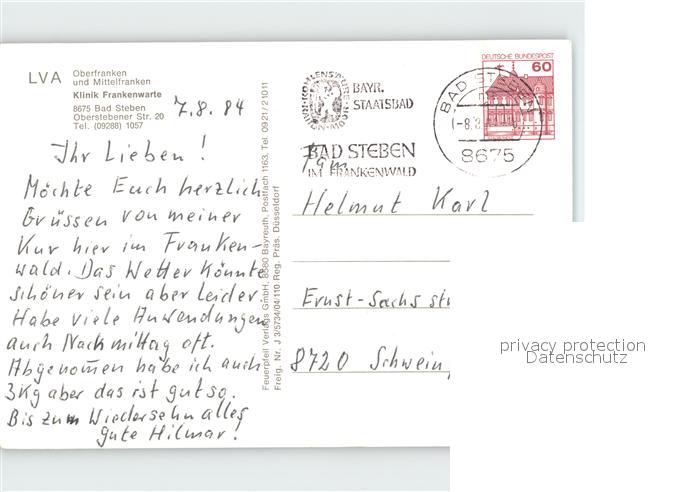 LVA Oberfranken
und Mittelfranken
Klinik Frankenwarte
8675 Bad Steben
Oberstebener Str. 20
Tel. (09288) 1057
7.8.84
Ihr Lieben!
Möchte Euch herzlich
Grüssen von meiner
Kur hier im Franken-
wald. Das Wetter könnte
schöner sein aber leider.
Habe viele Anwendungen
auch Nachmittag oft.
Abgenommen habe ich auch
3Kg aber das ist gut so.
Bis zum Wiedersehn alles
gute Hilmar!
Feuerpfeil Verlags GmbH, 8580 Bayreuth, Postfach 1163, Tel. 09 21 / 2 10 11
Freig. Nr. J 3/5734/04/110 Reg. Präs. Düsseldorf
BAYR.
STAATSBAD
BAD STEBEN
IM FRANKENWALD
DEUTSCHE BUNDESPOST
60
BAD STEBEN
-8.8.
8675
Fam
Helmut Karl
Ernst-Sachs str
8720 Schwein
privacy protection
Datenschutz